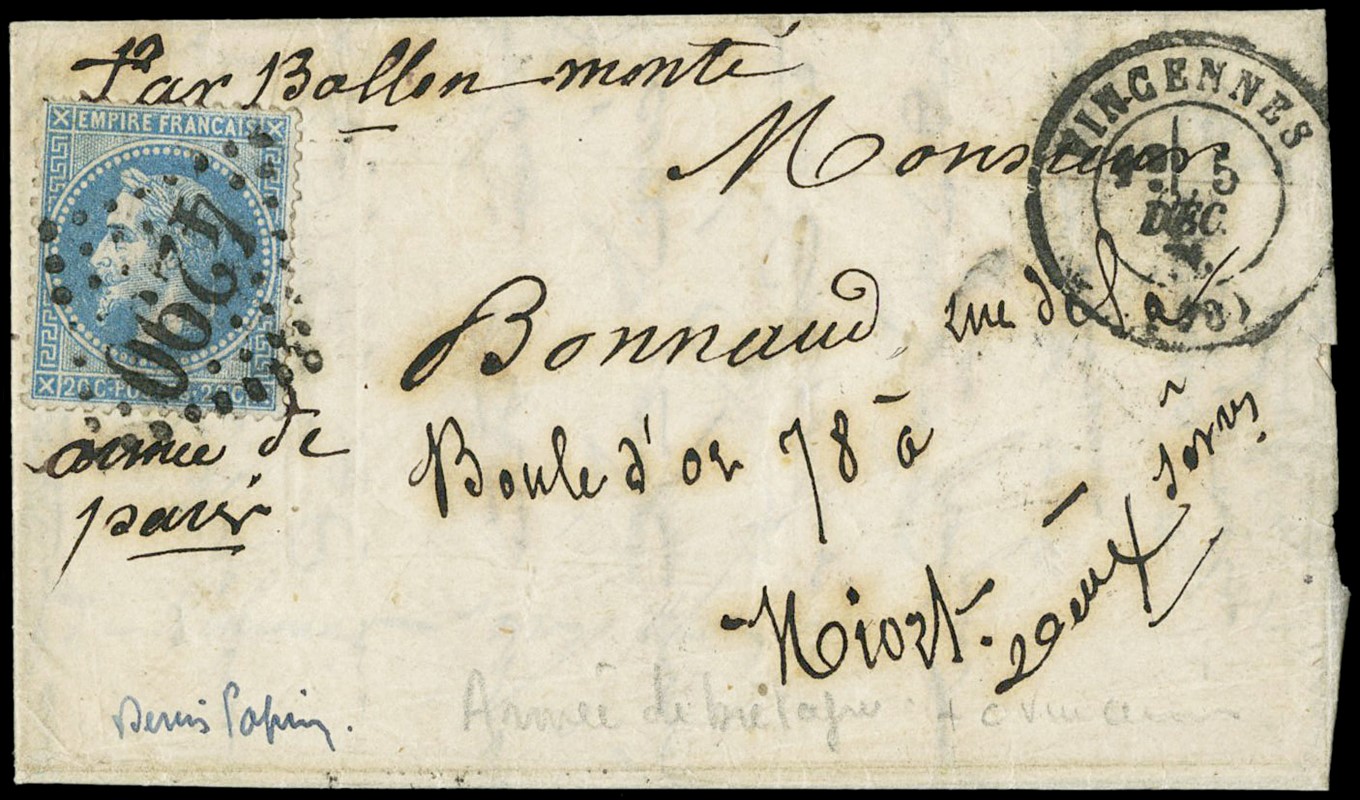 Par Ballon monté
EMPIRE FRANÇAIS
4290
20 C POSTES 20 C
VINCENNES
5
DEC.
Monsieur
Bonnaud, rue de la
Boule d'or 78 à
Niort. 2 Deux Sèvres
armée de
paris
Denis Papin.
Armée de bretagne